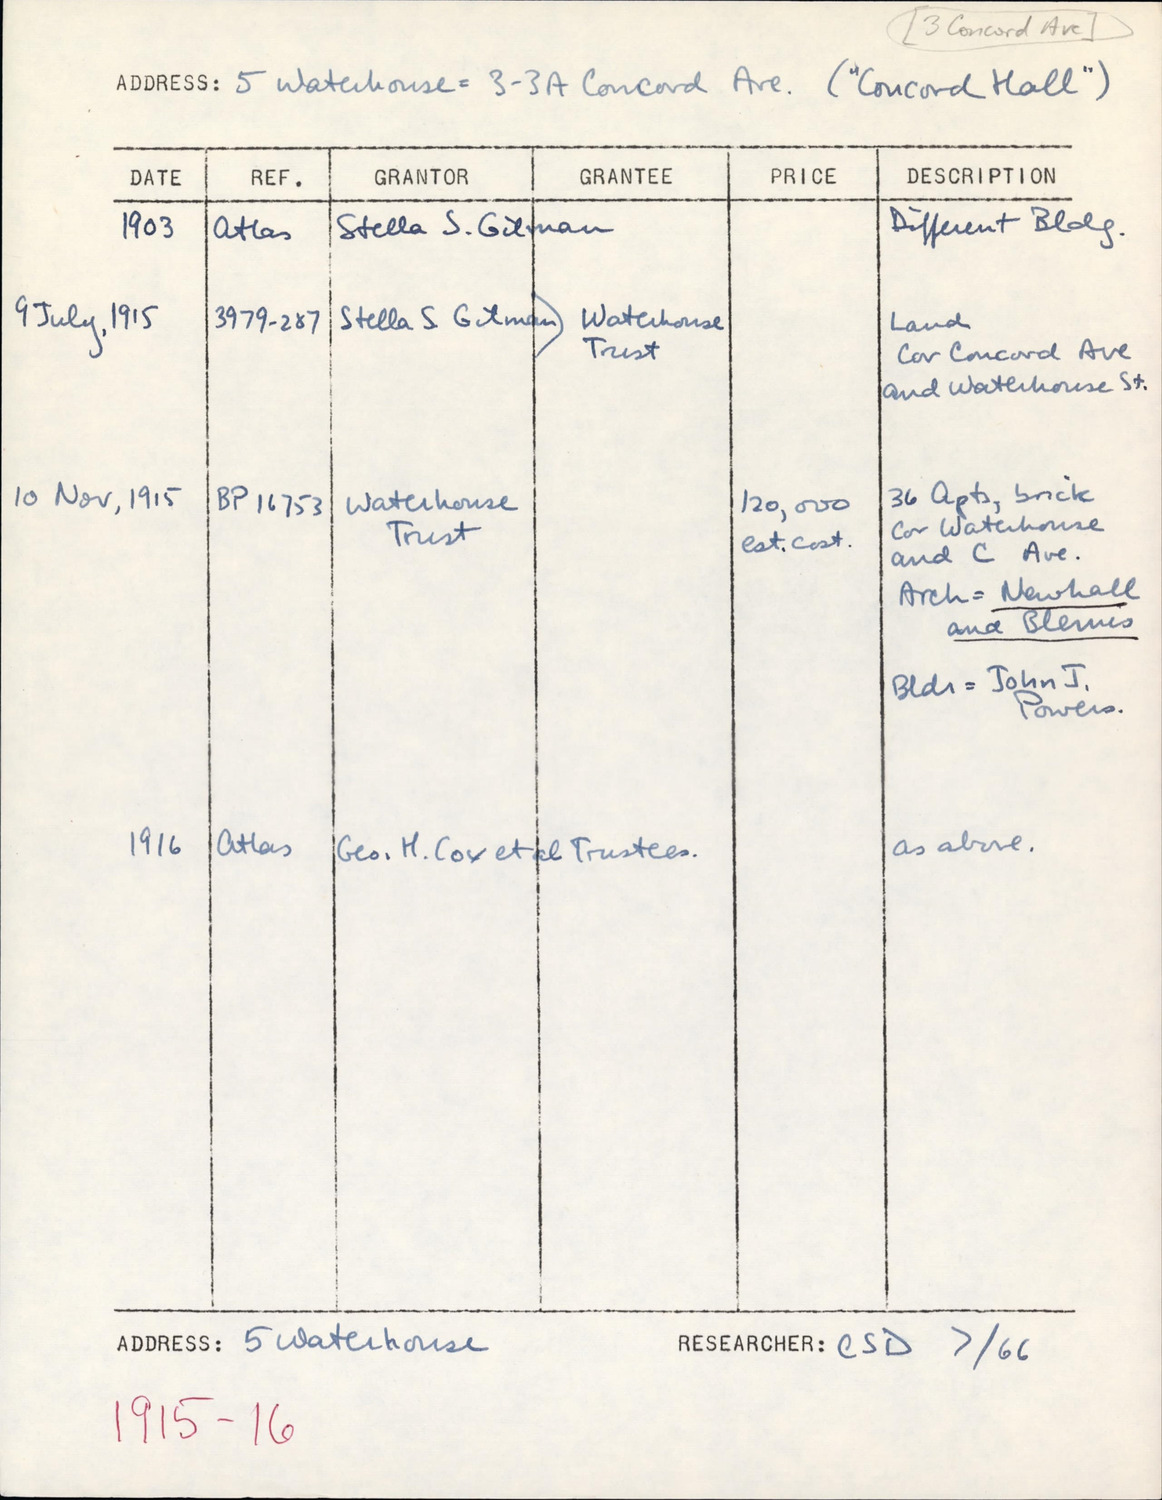 [3 Concord Ave]
ADDRESS: 5 Waterhouse = 3-3A Concord Ave. ("Concord Hall")
DATE REF. GRANTOR GRANTEE PRICE DESCRIPTION
1903 Atlas Stella S. Gilman Different Bldg.
9 July, 1915 3979-287 Stella S Gilman) Waterhouse Land
Trust Cor Concord Ave
and Waterhouse St.
10 Nov, 1915 BP 16753 Waterhouse 120,000 36 Apts, brick
Trust est. cost. Cor Waterhouse
and C Ave.
Arch = Newhall
and Blevins
Bldr = John J.
Powers.
1916 Atlas Geo. H. Cox et al Trustees. as above.
ADDRESS: 5 Waterhouse RESEARCHER: CSD 7/66
1915-16